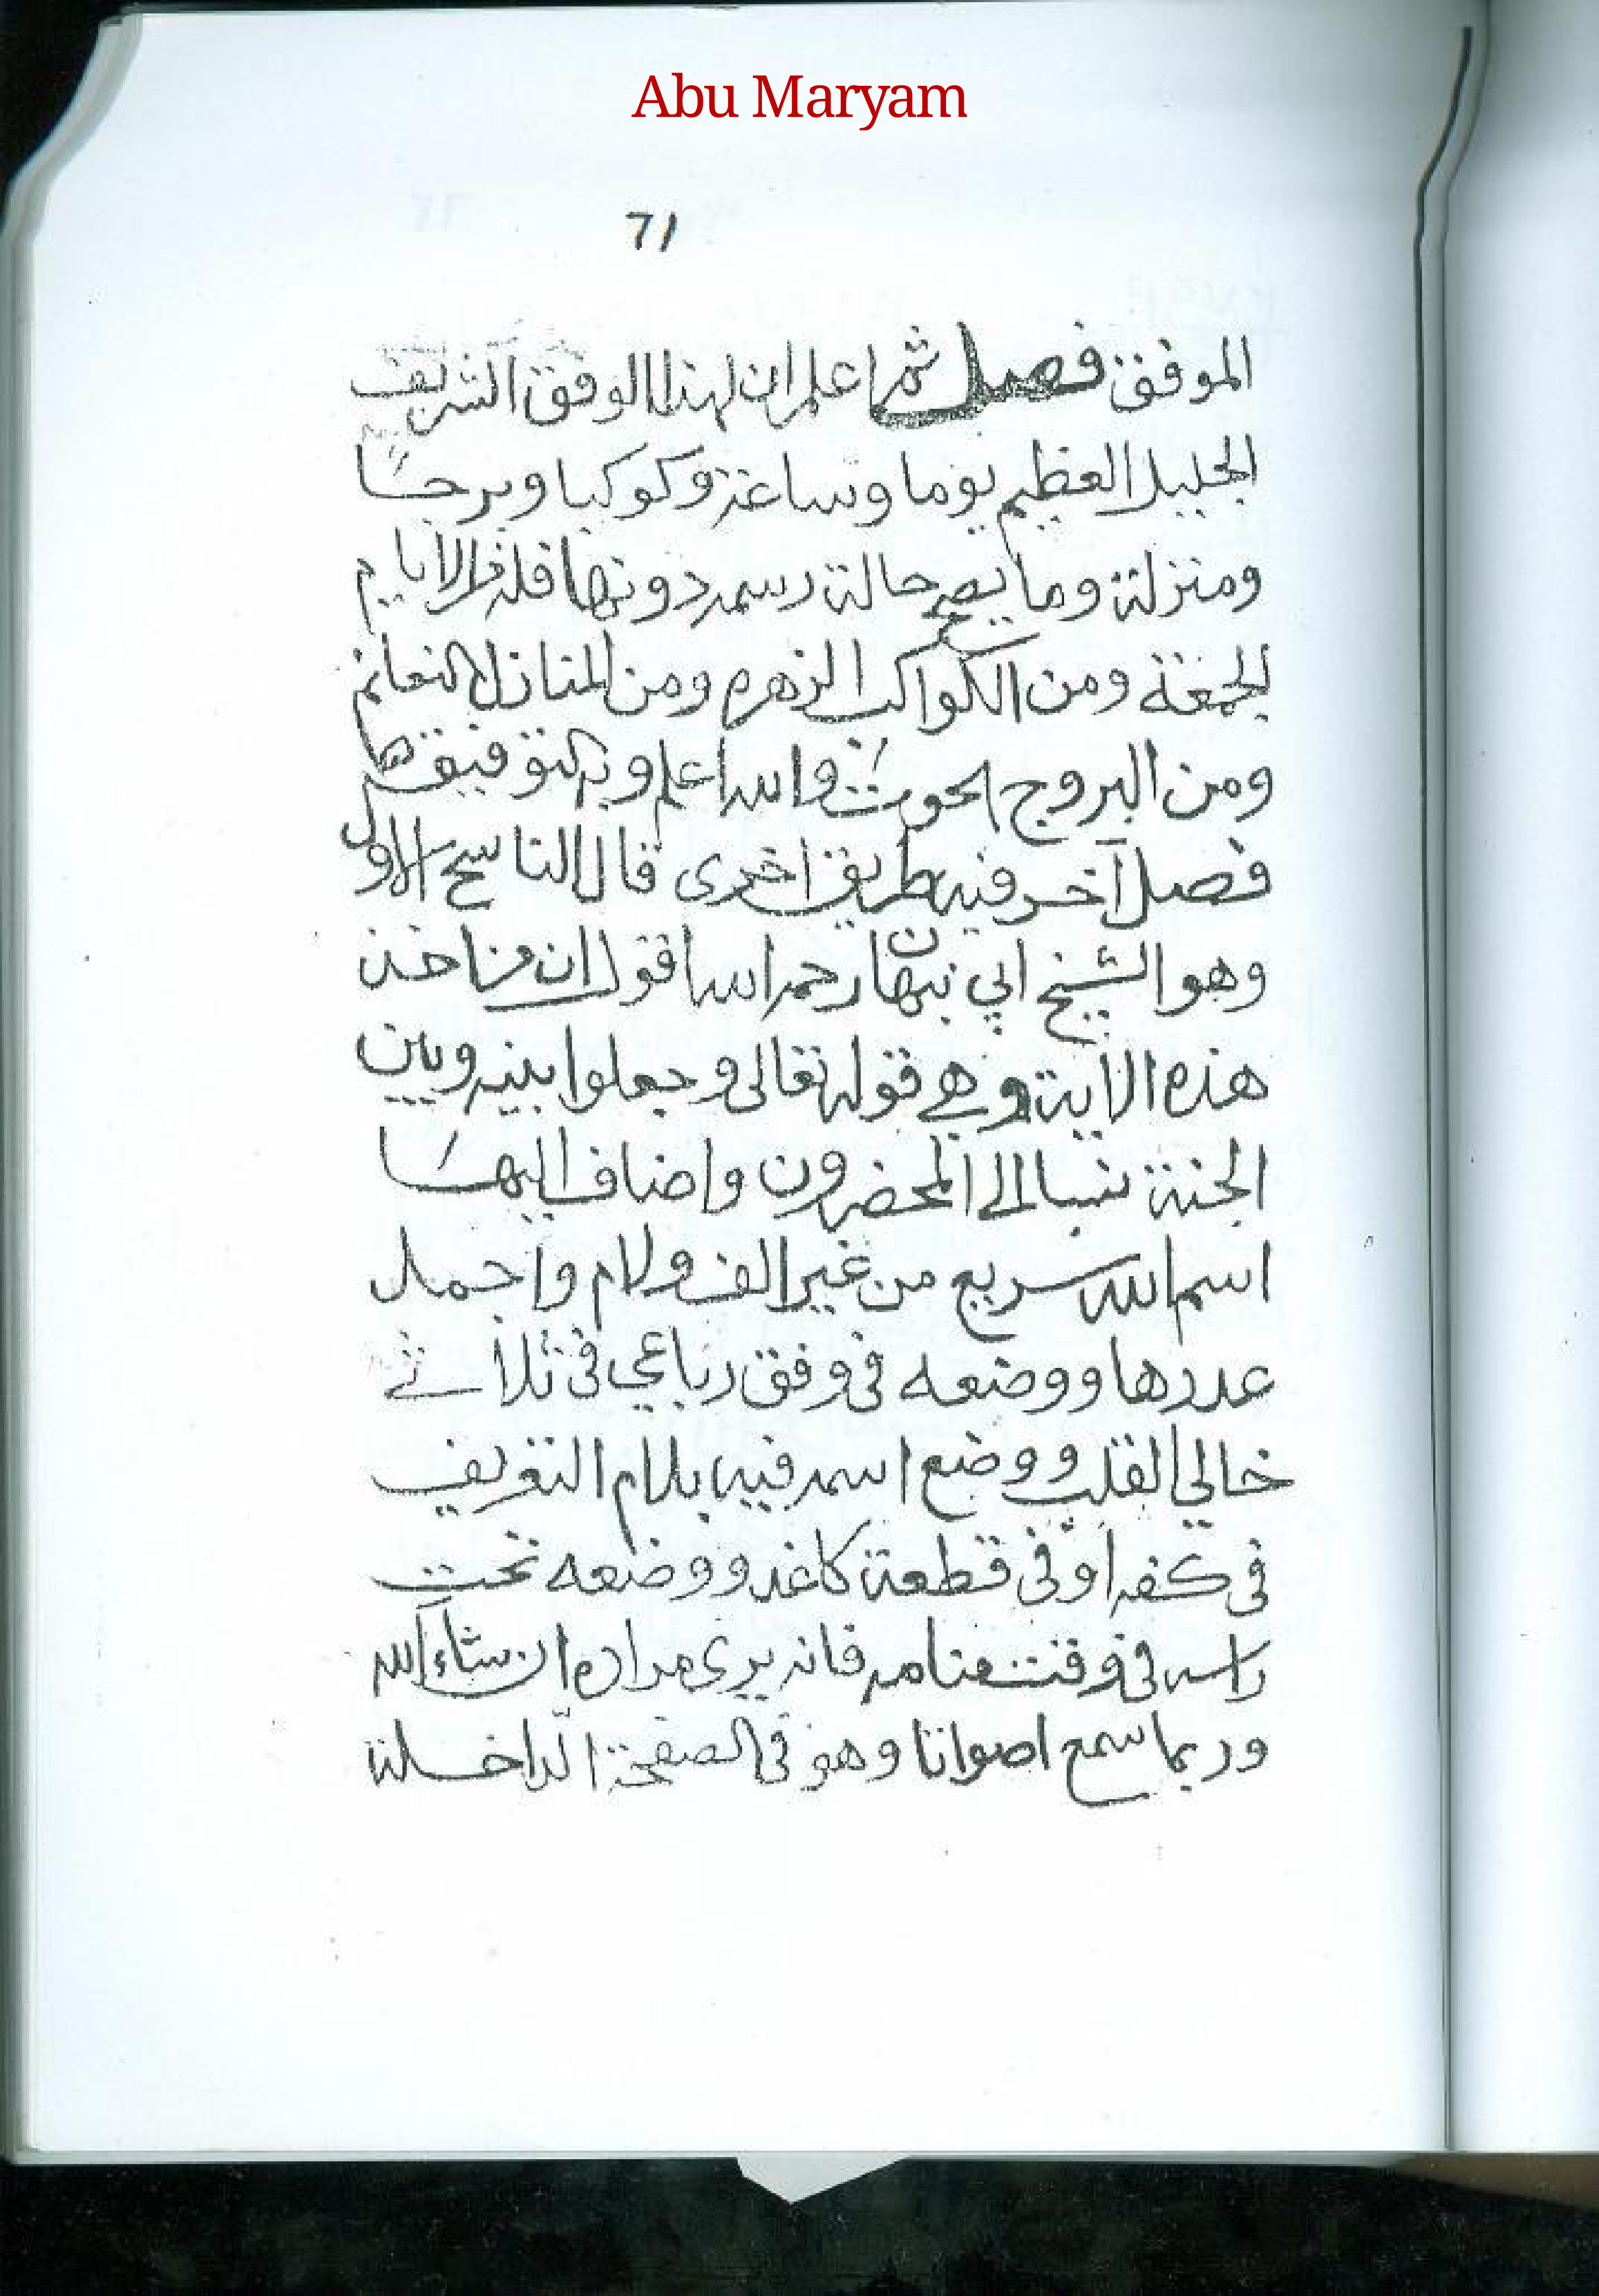 Abu Maryam
71
الموفق فصل ثم اعلم ان لهذا الوفق الشريف
الجليل العظيم يوما وساعة وكوكبا وبرجًا
ومنزلة وما يصح حالة رسمه دونها فله من الايام
الجمعة ومن الكواكب الزهره ومن المنازل النعائم
ومن البروج الحوت والله اعلم وبه التوفيق
فصل آخر فيه طريق اخرى قال الناسخ الاول
وهو الشيخ ابي نبهان رحمه الله اقول ان من اخذ
هذه الآية وهي قوله تعالى وجعلوا بينه وبين
الجنة نسبا الى المحضرون واضاف اليهَا
اسم الله سريع من غير الف ولام واجمل
عددها ووضعه في وفق رباعي في ثلاثة
خالي القلب ووضع اسمه فيه بلام التعريف
في كفه او في قطعة كاغد ووضعه تحت
راسه في وقت منامه فانه يرى مراده ان شاء الله
وربما سمع اصواتا وهو في الصفحة الداخلة